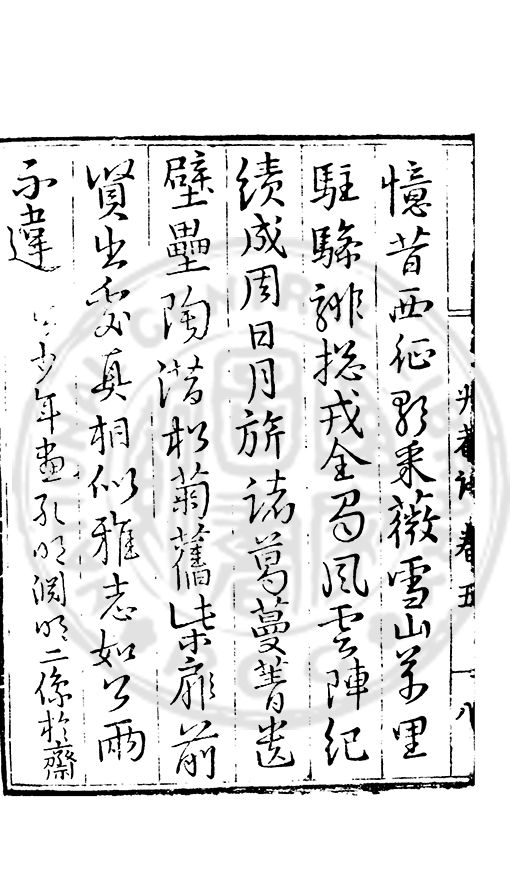 憶昔西征歌采薇雪山萬里
駐騑總戎全蜀風雲陣紀
績成周日月旂諸葛蔓菁遺
壁壘陶潛松菊舊柴扉前
賢出處真相似雅志如公兩
不違 少年畫孔明淵明二像於齋
卷五
八